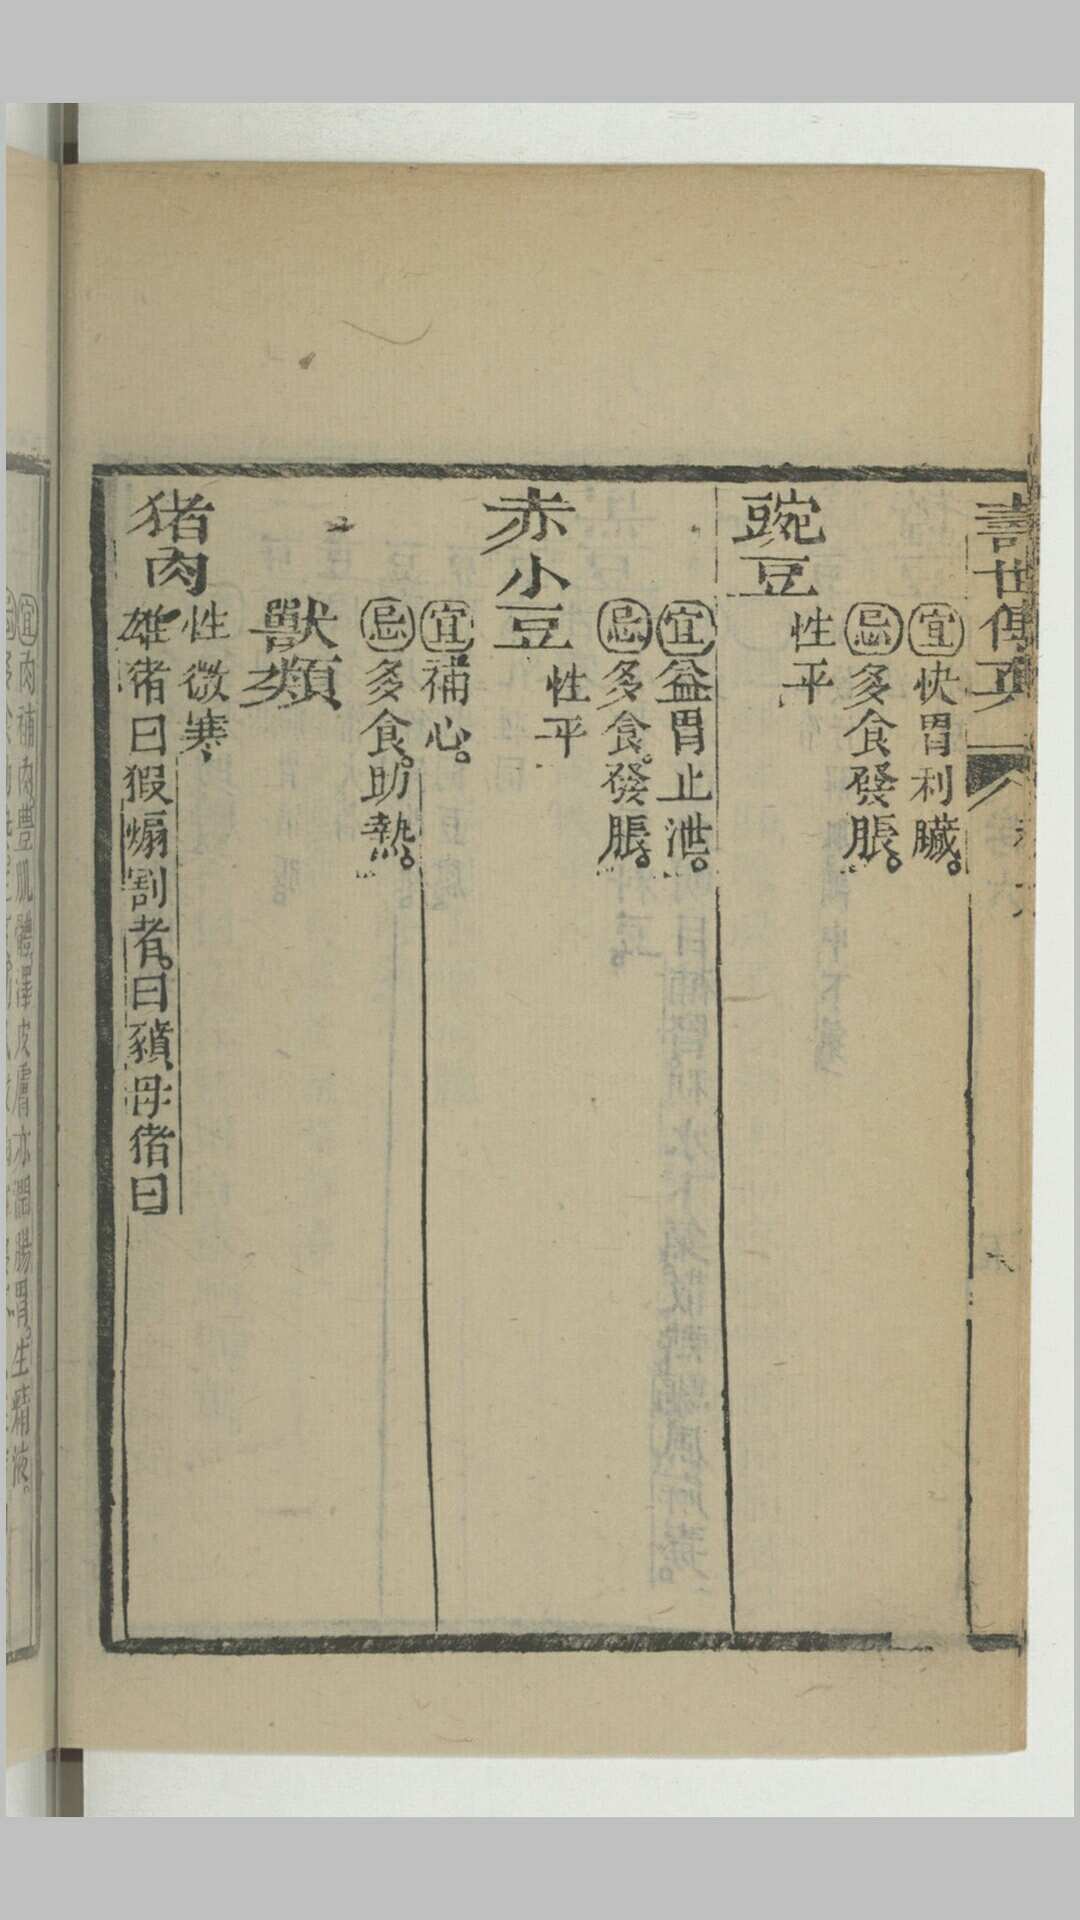 壽世傳真
宜快胃利臟。
忌多食發脹。
豌豆
性平
宜益胃止泄。
忌多食。發脹。
赤小豆
性平
宜補心。
忌多食。助熱。
獸類
猪肉
性微寒
雄猪曰猳煽割者。曰豶母猪曰
宜肉補肉豊肌體澤皮膚亦潤腸胃。生精液。